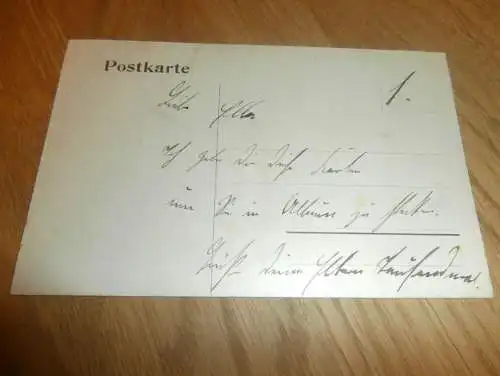 Postkarte
1.
Liebe Ella
Ich gebe Dir diese Karten
um Sie in Album zu stecken.
Grüße Deine Eltern Tausendmal.